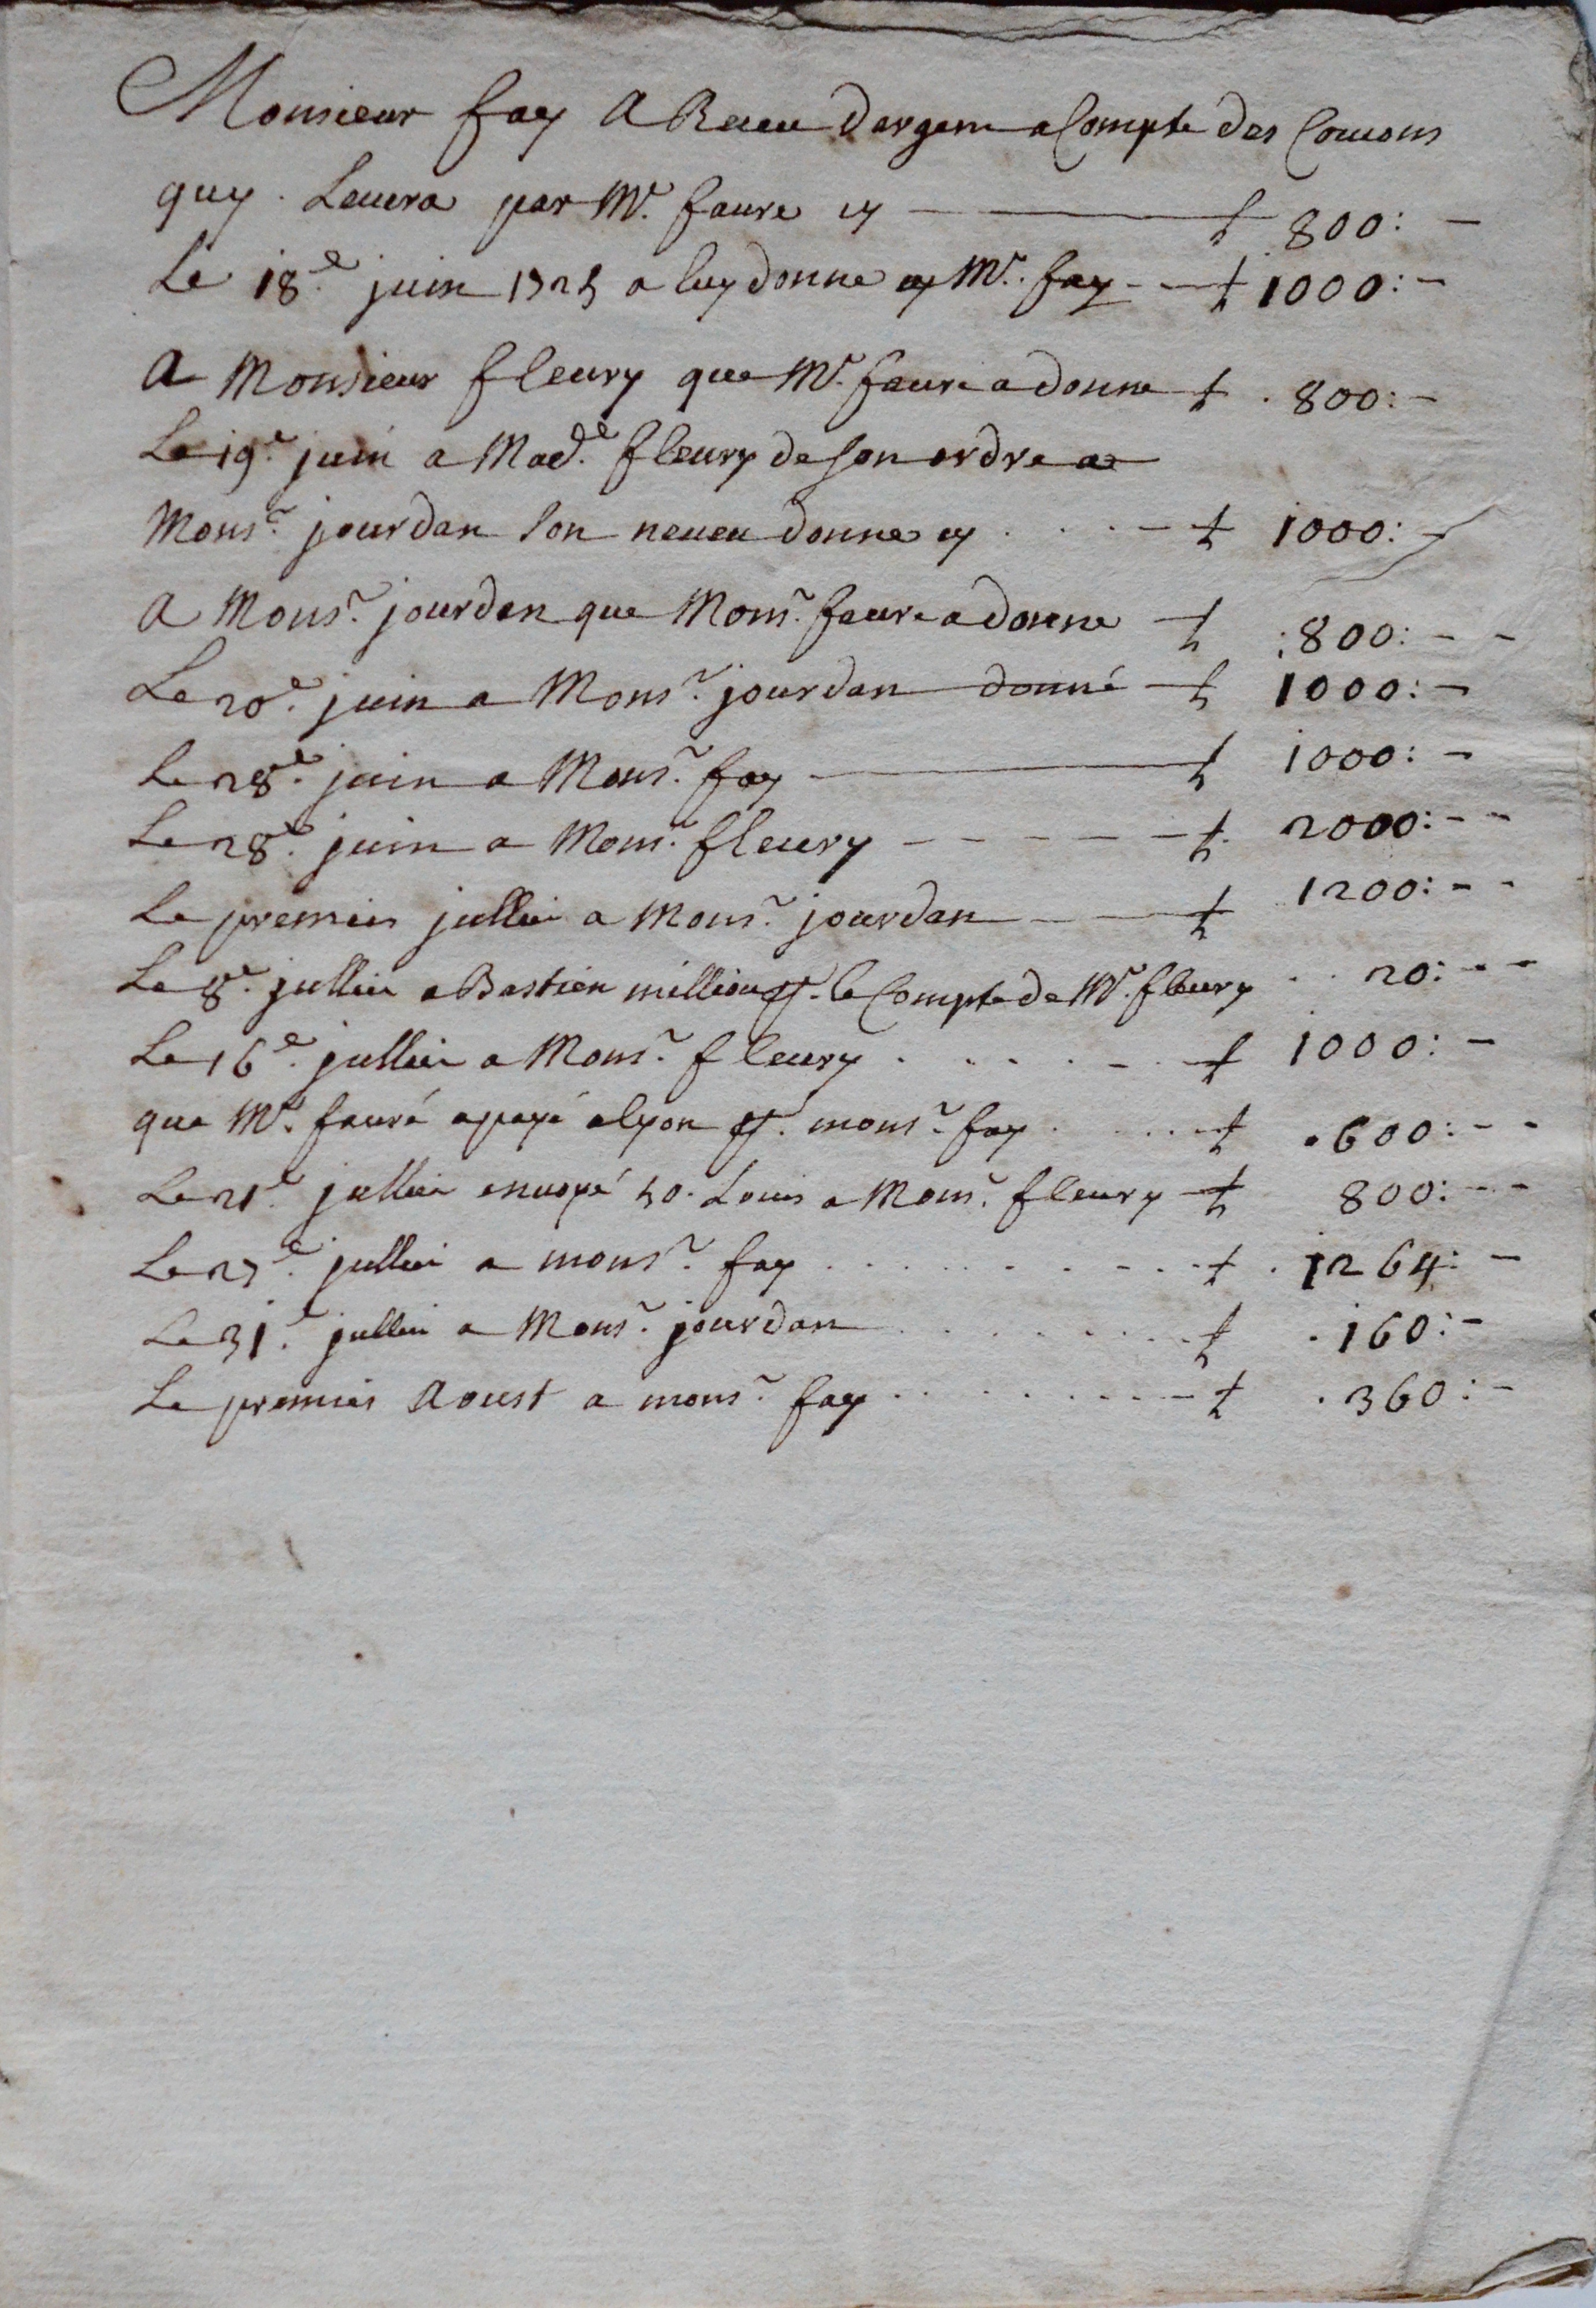 Monsieur fay A Receu dargem a Compte des Couons
quy. Leuera par Mr. faure cy — ₶ 800: —
Le 18e. juin 1725 a luy donne cy Mr. fay - — ₶ 1000: -
A Monsieur fleury que Mr. faure a donne ₶ . 800: -
Le 19e. juin a Made. fleury de son ordre a
Monsr. jourdan son neueu donne cy . . . - ₶ 1000: -
A Monsr. jourdan que Monsr. faure a donne — ₶ : 800: - -
Le 20e. juin a Monsr. jourdan donné — ₶ 1000: -
Le 28e. juin a Monsr. fay — ₶ 1000: -
Le 28e. juin a Monsr. fleury - - - - - ₶. 2000: - -
Le premier jullier a Monsr. jourdan — ₶ 1200: - -
Le 8e. jullier a Bastien million p. le Compte de Mr. fleury . . 20: - -
Le 16e. jullier a Monsr. fleury . . . . - . ₶ 1000: -
que Mr. fauré a payé a lyon p. monsr. fay . . . . ₶ . 600: - -
Le 21e. jullier enuoyé 50. Louis a Monsr. fleury ₶ 800: - -
Le 27e. jullier a monsr. fay . . . . . . . . ₶ . 1264: -
Le 31e. jullier a Monsr. jourdan . . . . . . . ₶ . 160: -
Le premier Aoust a monsr. fay . . . . . . . - ₶ . 360: -